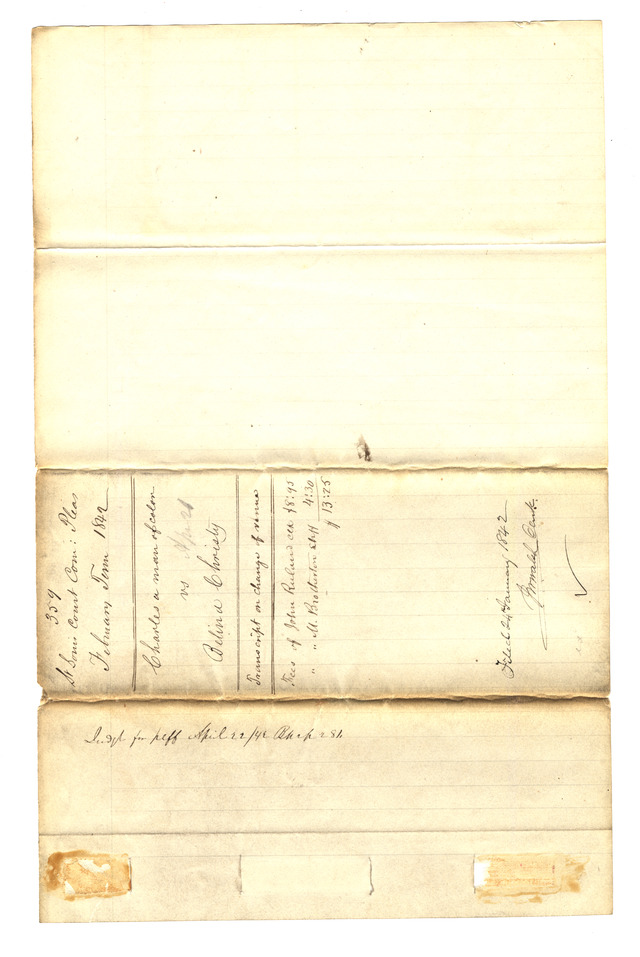 359
St Louis Court Com: Pleas
February Term 1842
Charles a man of color
vs
Belina Christy
Transcript on change of venue
Fees of John Ruland clk $8:95
" " M. Brotherton Shff 4:30
$ 13:25
Filed 24 January 1842
Clerk.
Judgt for plff April 22/42